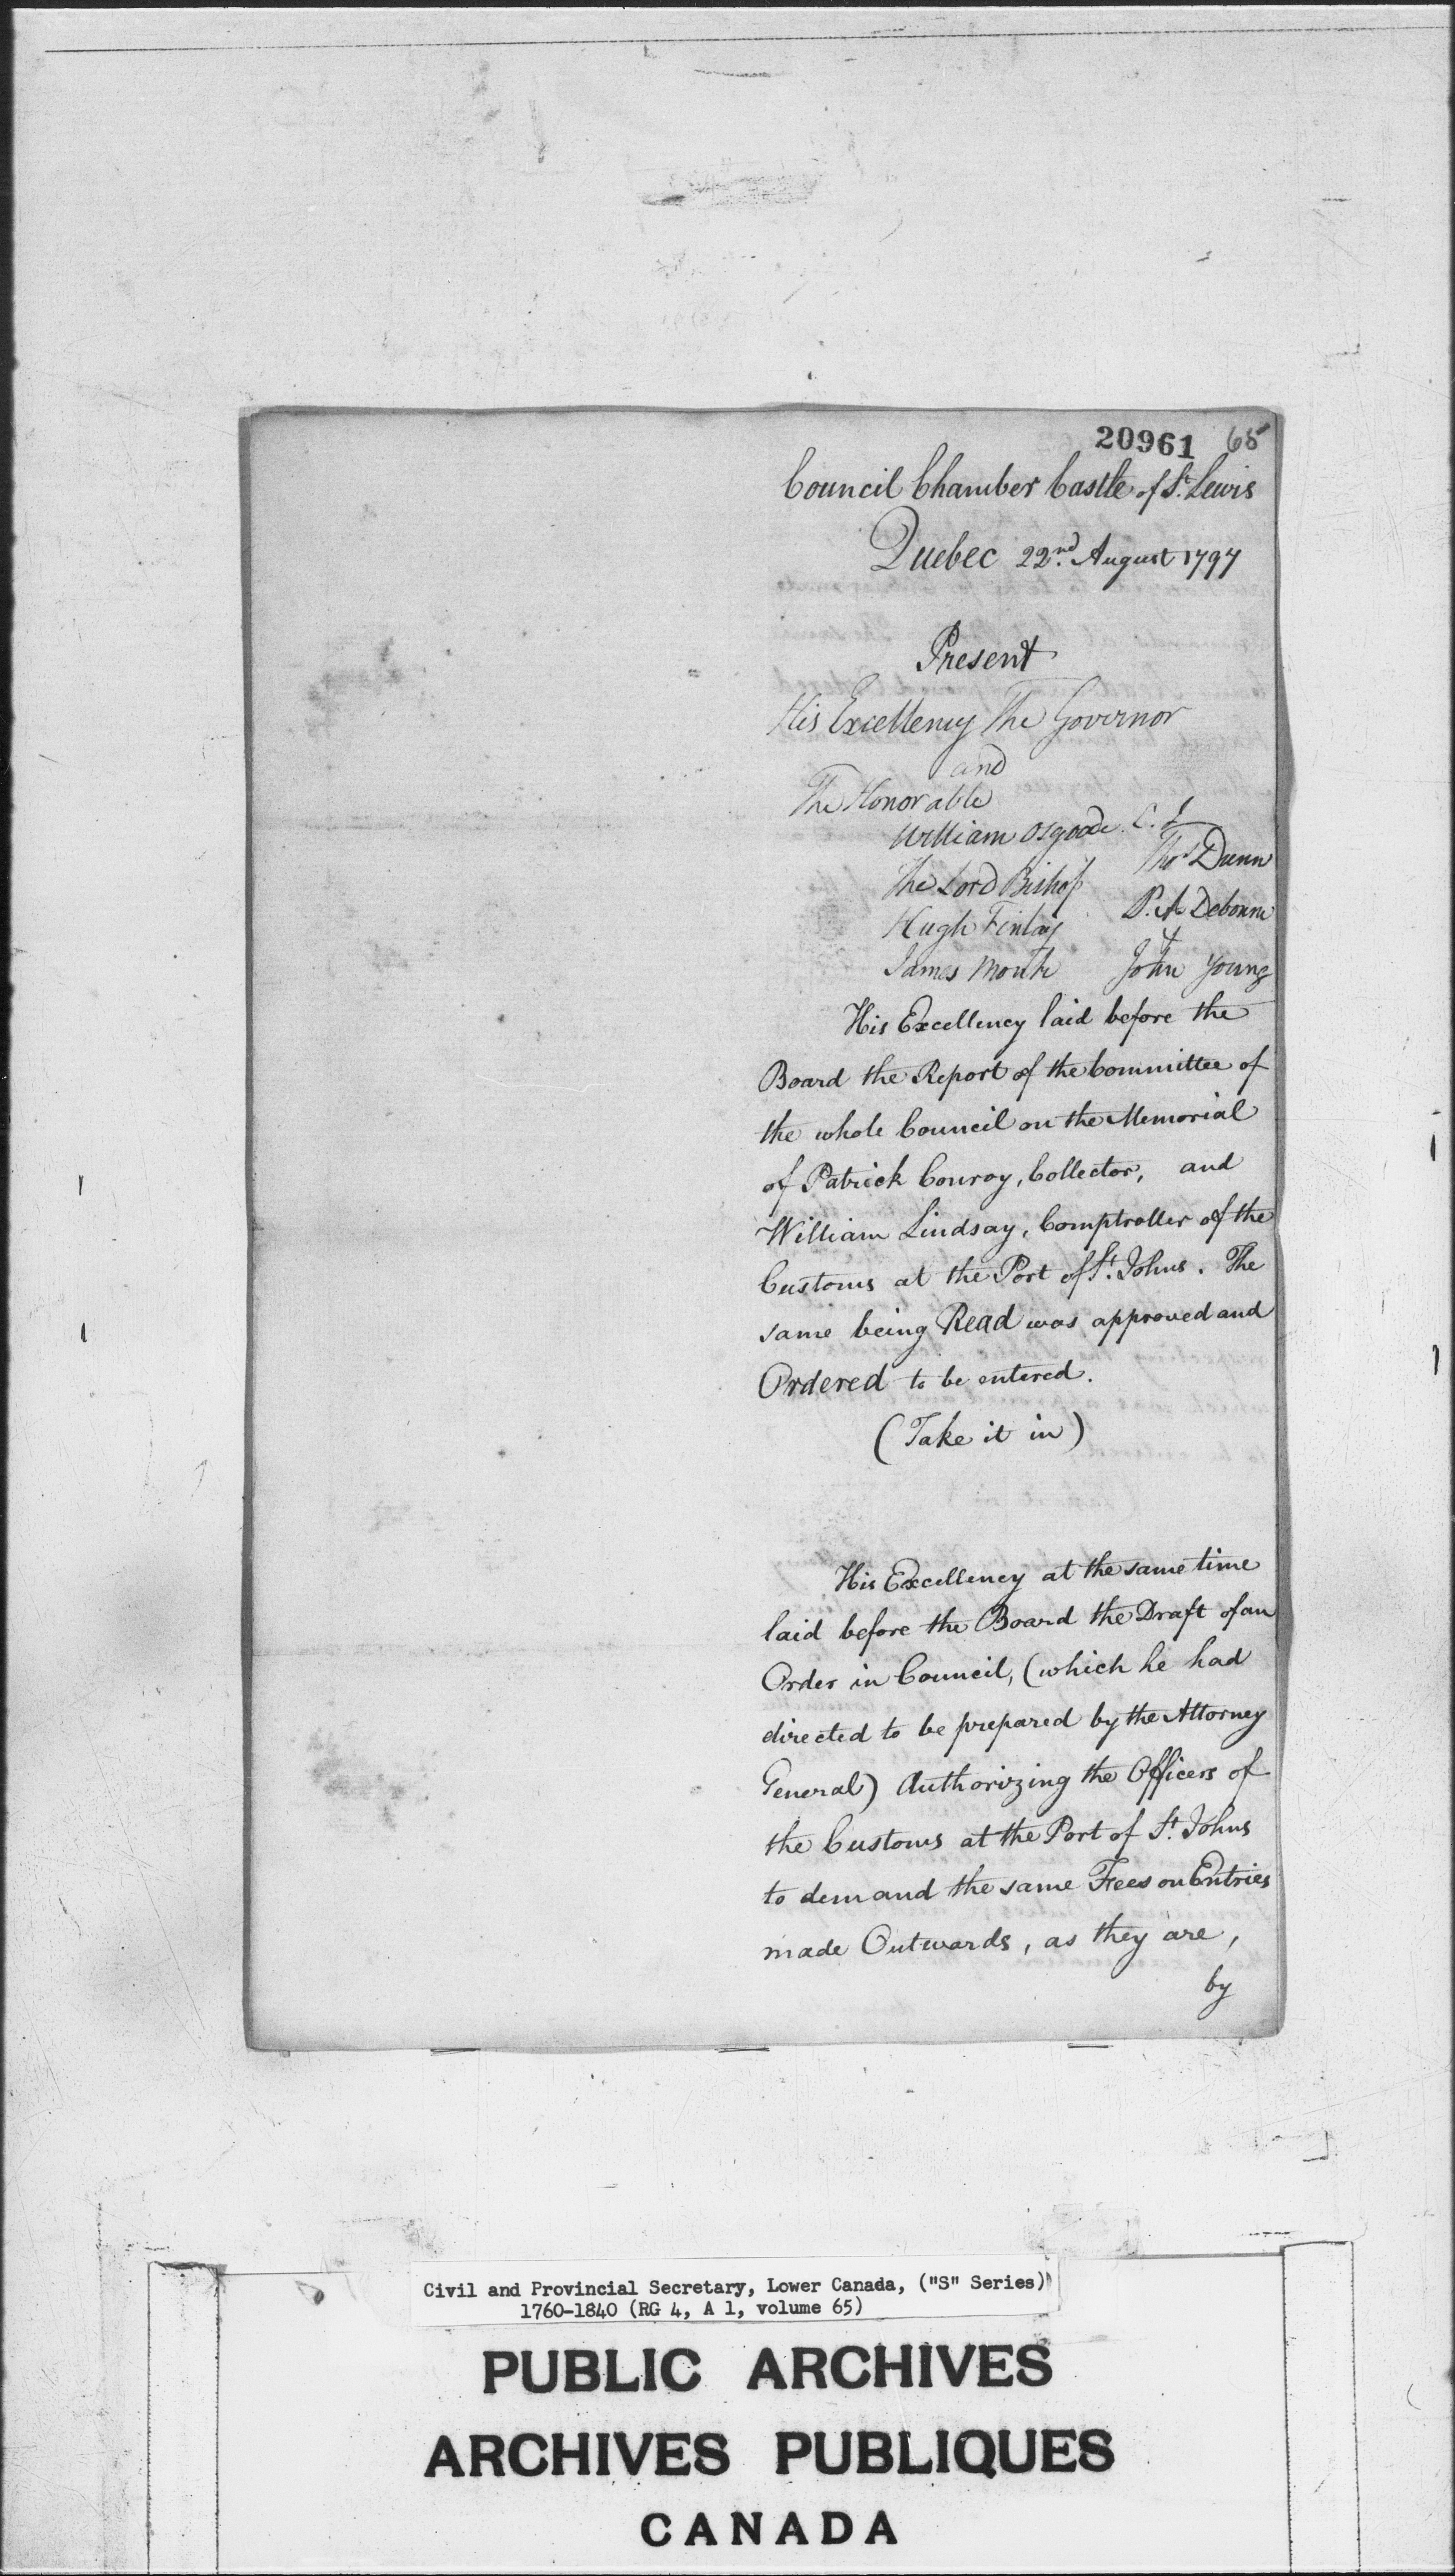 20961 65
Council Chamber Castle of St. Lewis
Quebec 22nd. August 1797
Present
His Excellency The Governor
and
The Honorable
William Osgoode. C. J.
The Lord Bishop Thos Dunn
Hugh Finlay P. A Debonne
James Monk & John Young
His Excellency laid before the
Board the Report of the Committee of
the whole Council on the Memorial
of Patrick Conroy, Collector, and
William Lindsay, Comptroller of the
Customs at the Port of St. Johns. The
same being Read was approved and
Ordered to be entered.
(Take it in)
His Excellency at the same time
laid before the Board the Draft of an
Order in Council, (which he had
directed to be prepared by the Attorney
General) Authorizing the Officers of
the Customs at the Port of St. Johns
to demand the same Fees on Entries
made Outwards, as they are,
by
Civil and Provincial Secretary, Lower Canada, ("S" Series)
1760-1840 (RG 4, A 1, volume 65)
PUBLIC ARCHIVES
ARCHIVES PUBLIQUES
CANADA